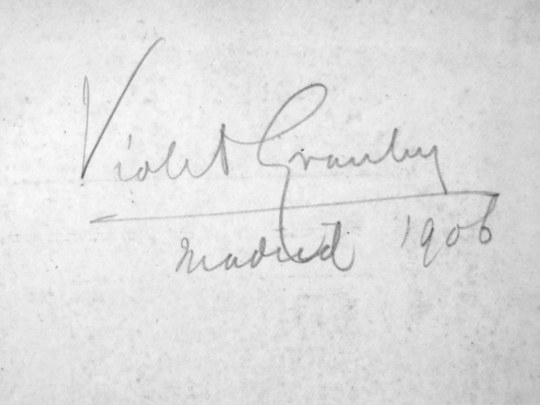 Violet Granby
Madrid 1906